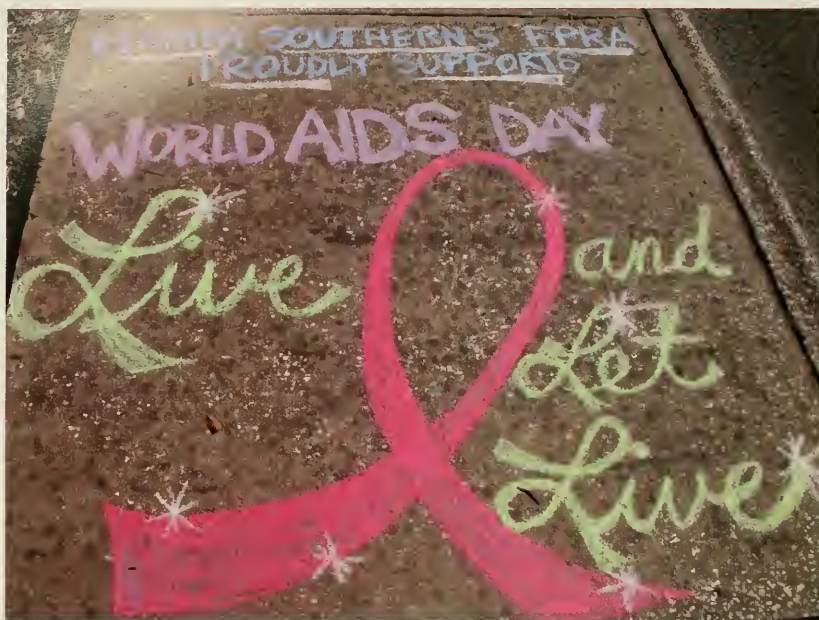 FLORIDA SOUTHERN'S FPRA
PROUDLY SUPPORTS
WORLD AIDS DAY
Live
and
Let
Live